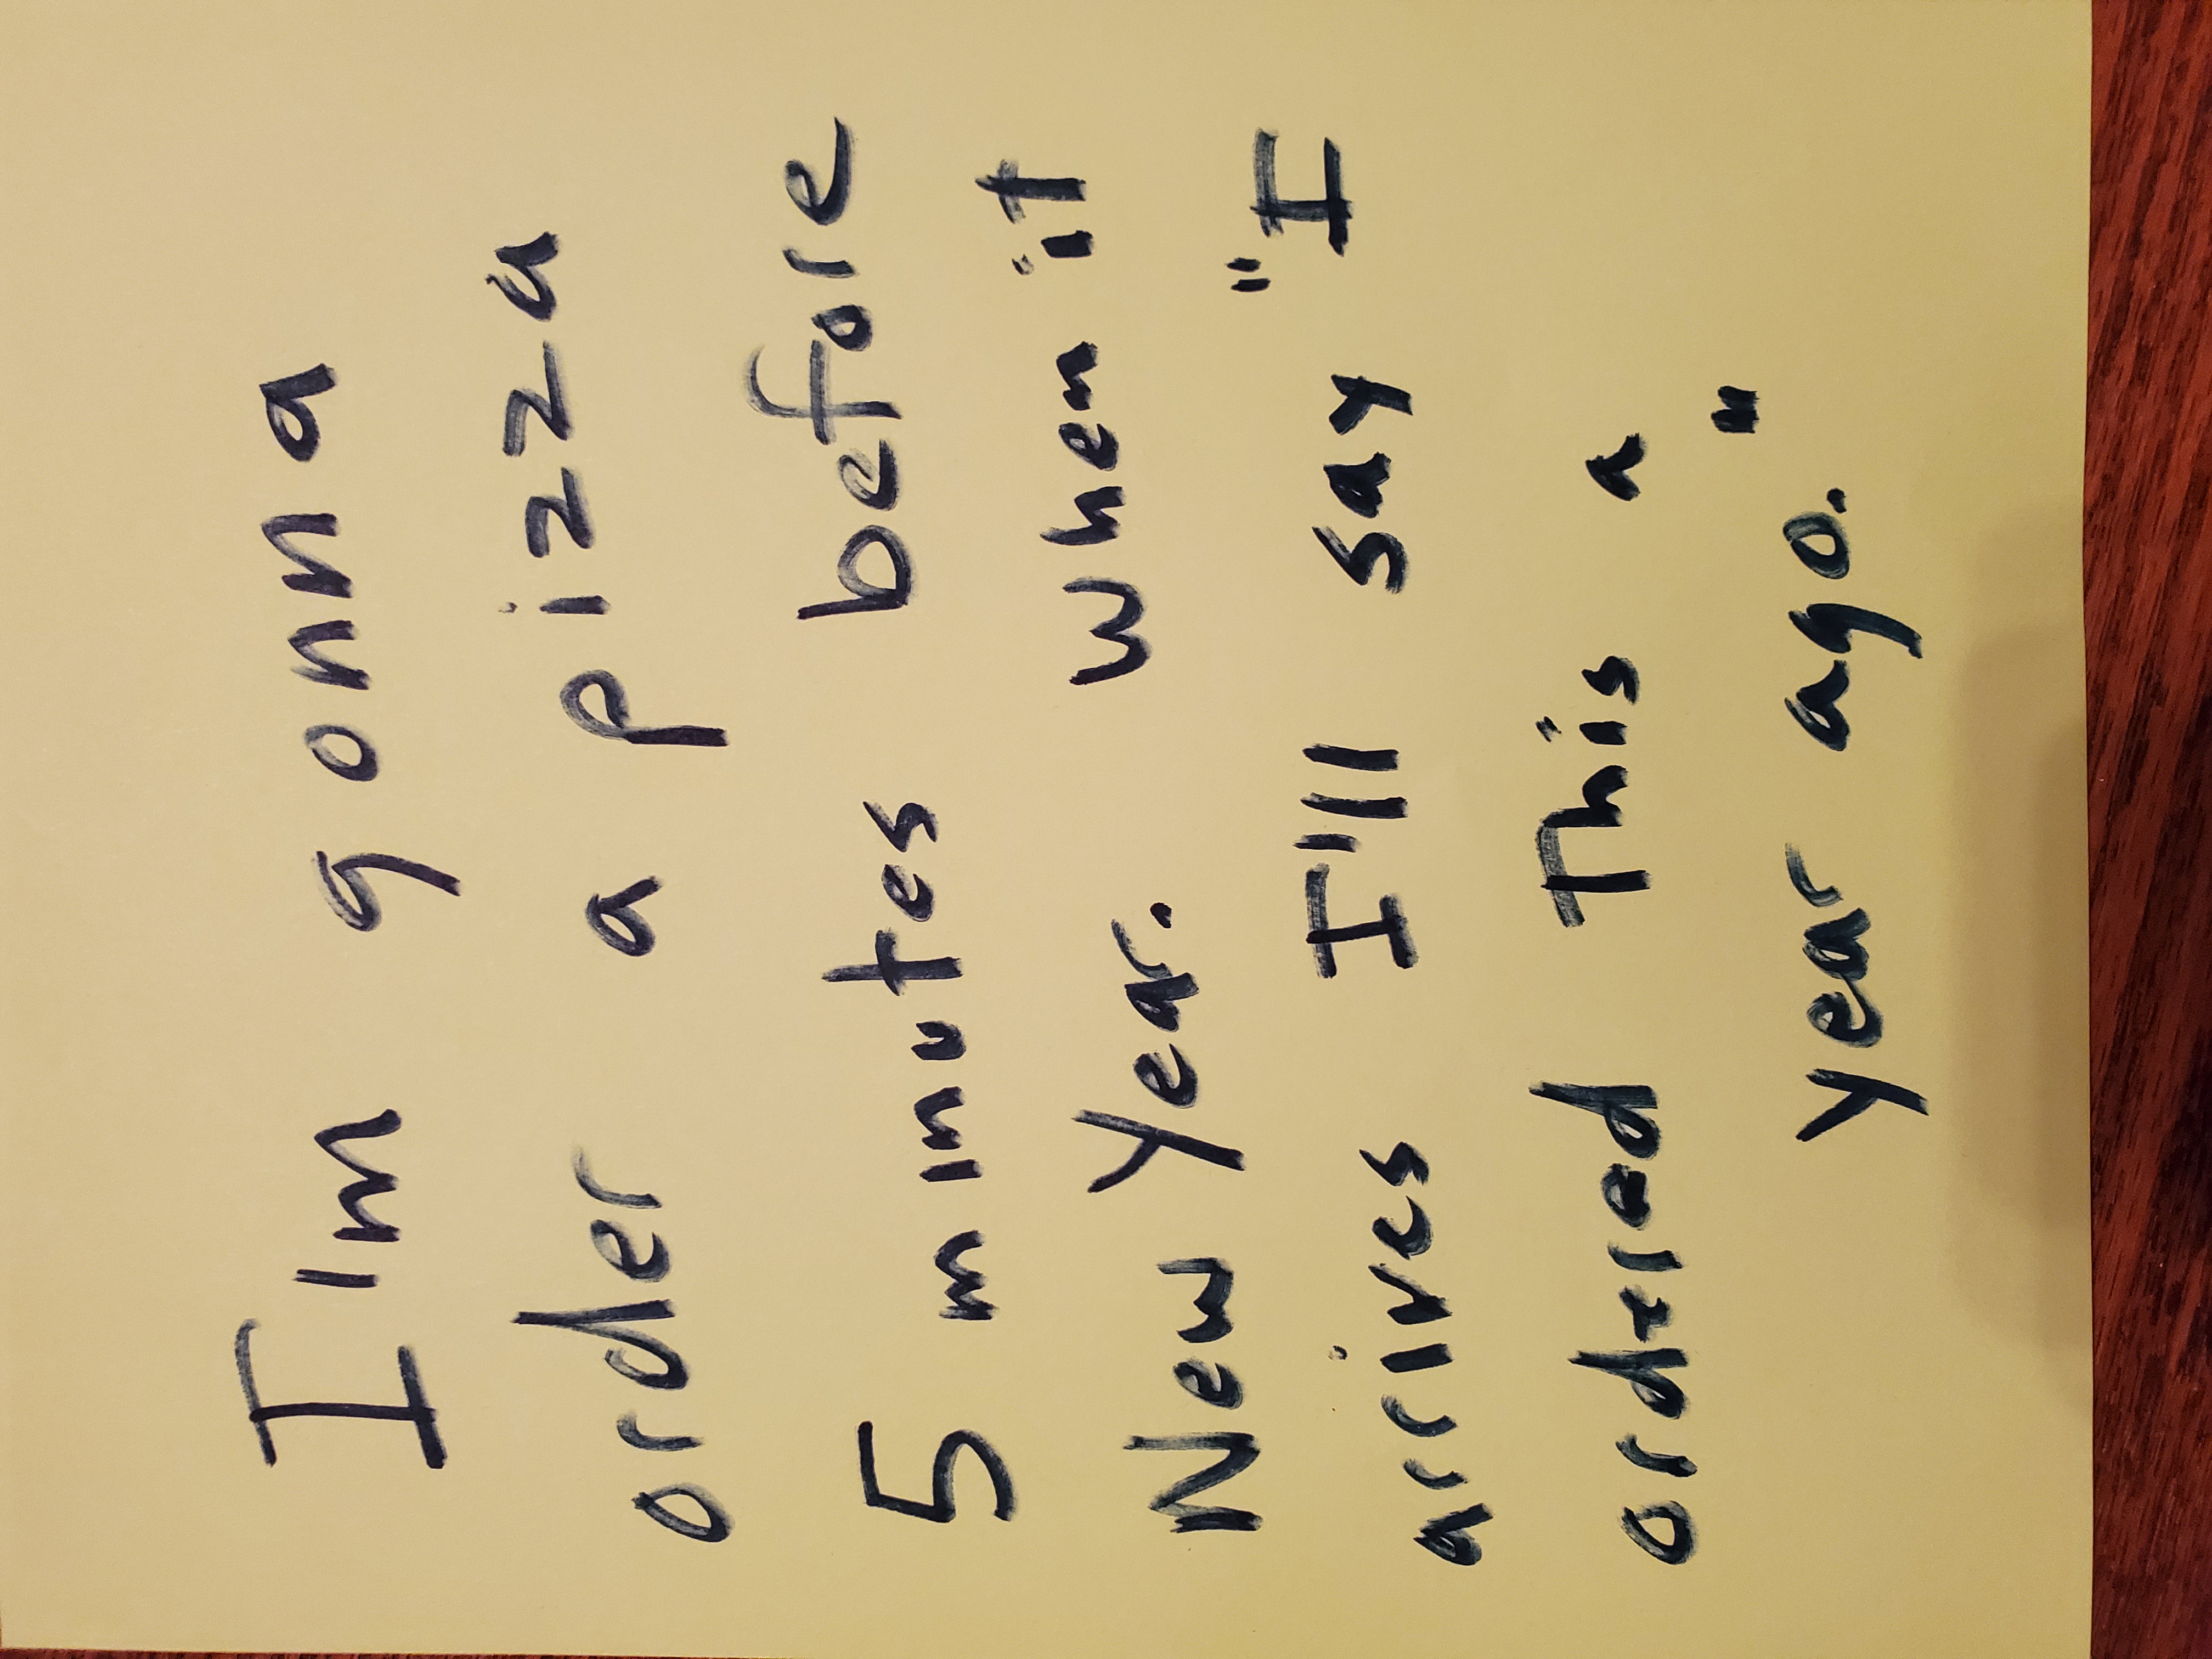 I'm gonna
order a pizza
5 minutes before
New Year. when it
arrives I'll say "I
ordered This a
year ago."